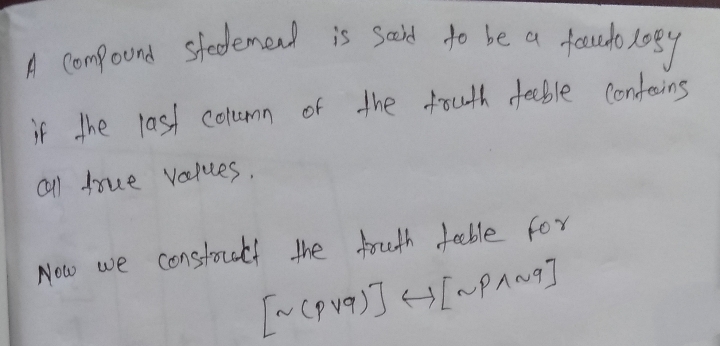 A compound statement is said to be a tautology
if the last column of the truth table contains
all true values.
Now we construct the truth table for
[~(p∨q)] ↔ [~p∧~q]